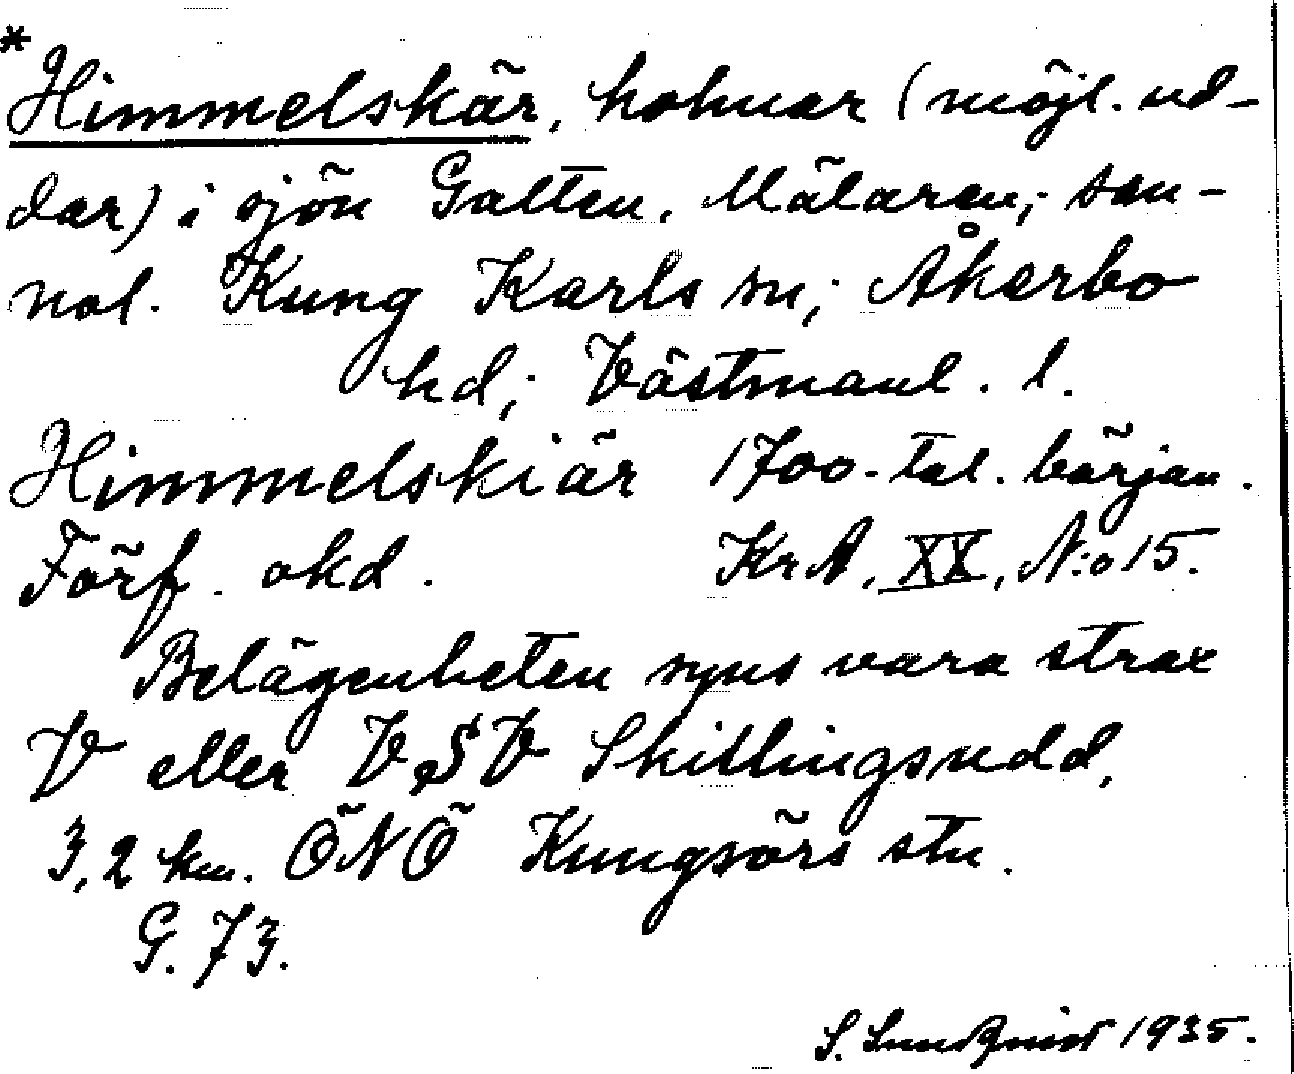 *Himmelskär, holmar (möjl. ud-
dar) i sjön Galten, Mälaren; san-
nol. Kung Karls sn; Åkerbo
hd; Västmanl. l.
Himmelskiär 1700-tal. början.
Förf. okd. KrA, XX, N:o 15.
Belägenheten synes vara strax
V eller VSV Skillingsudd,
3,2 km. ÖNÖ Kungsörs stn.
G. 73.
S. Lundquist 1935.